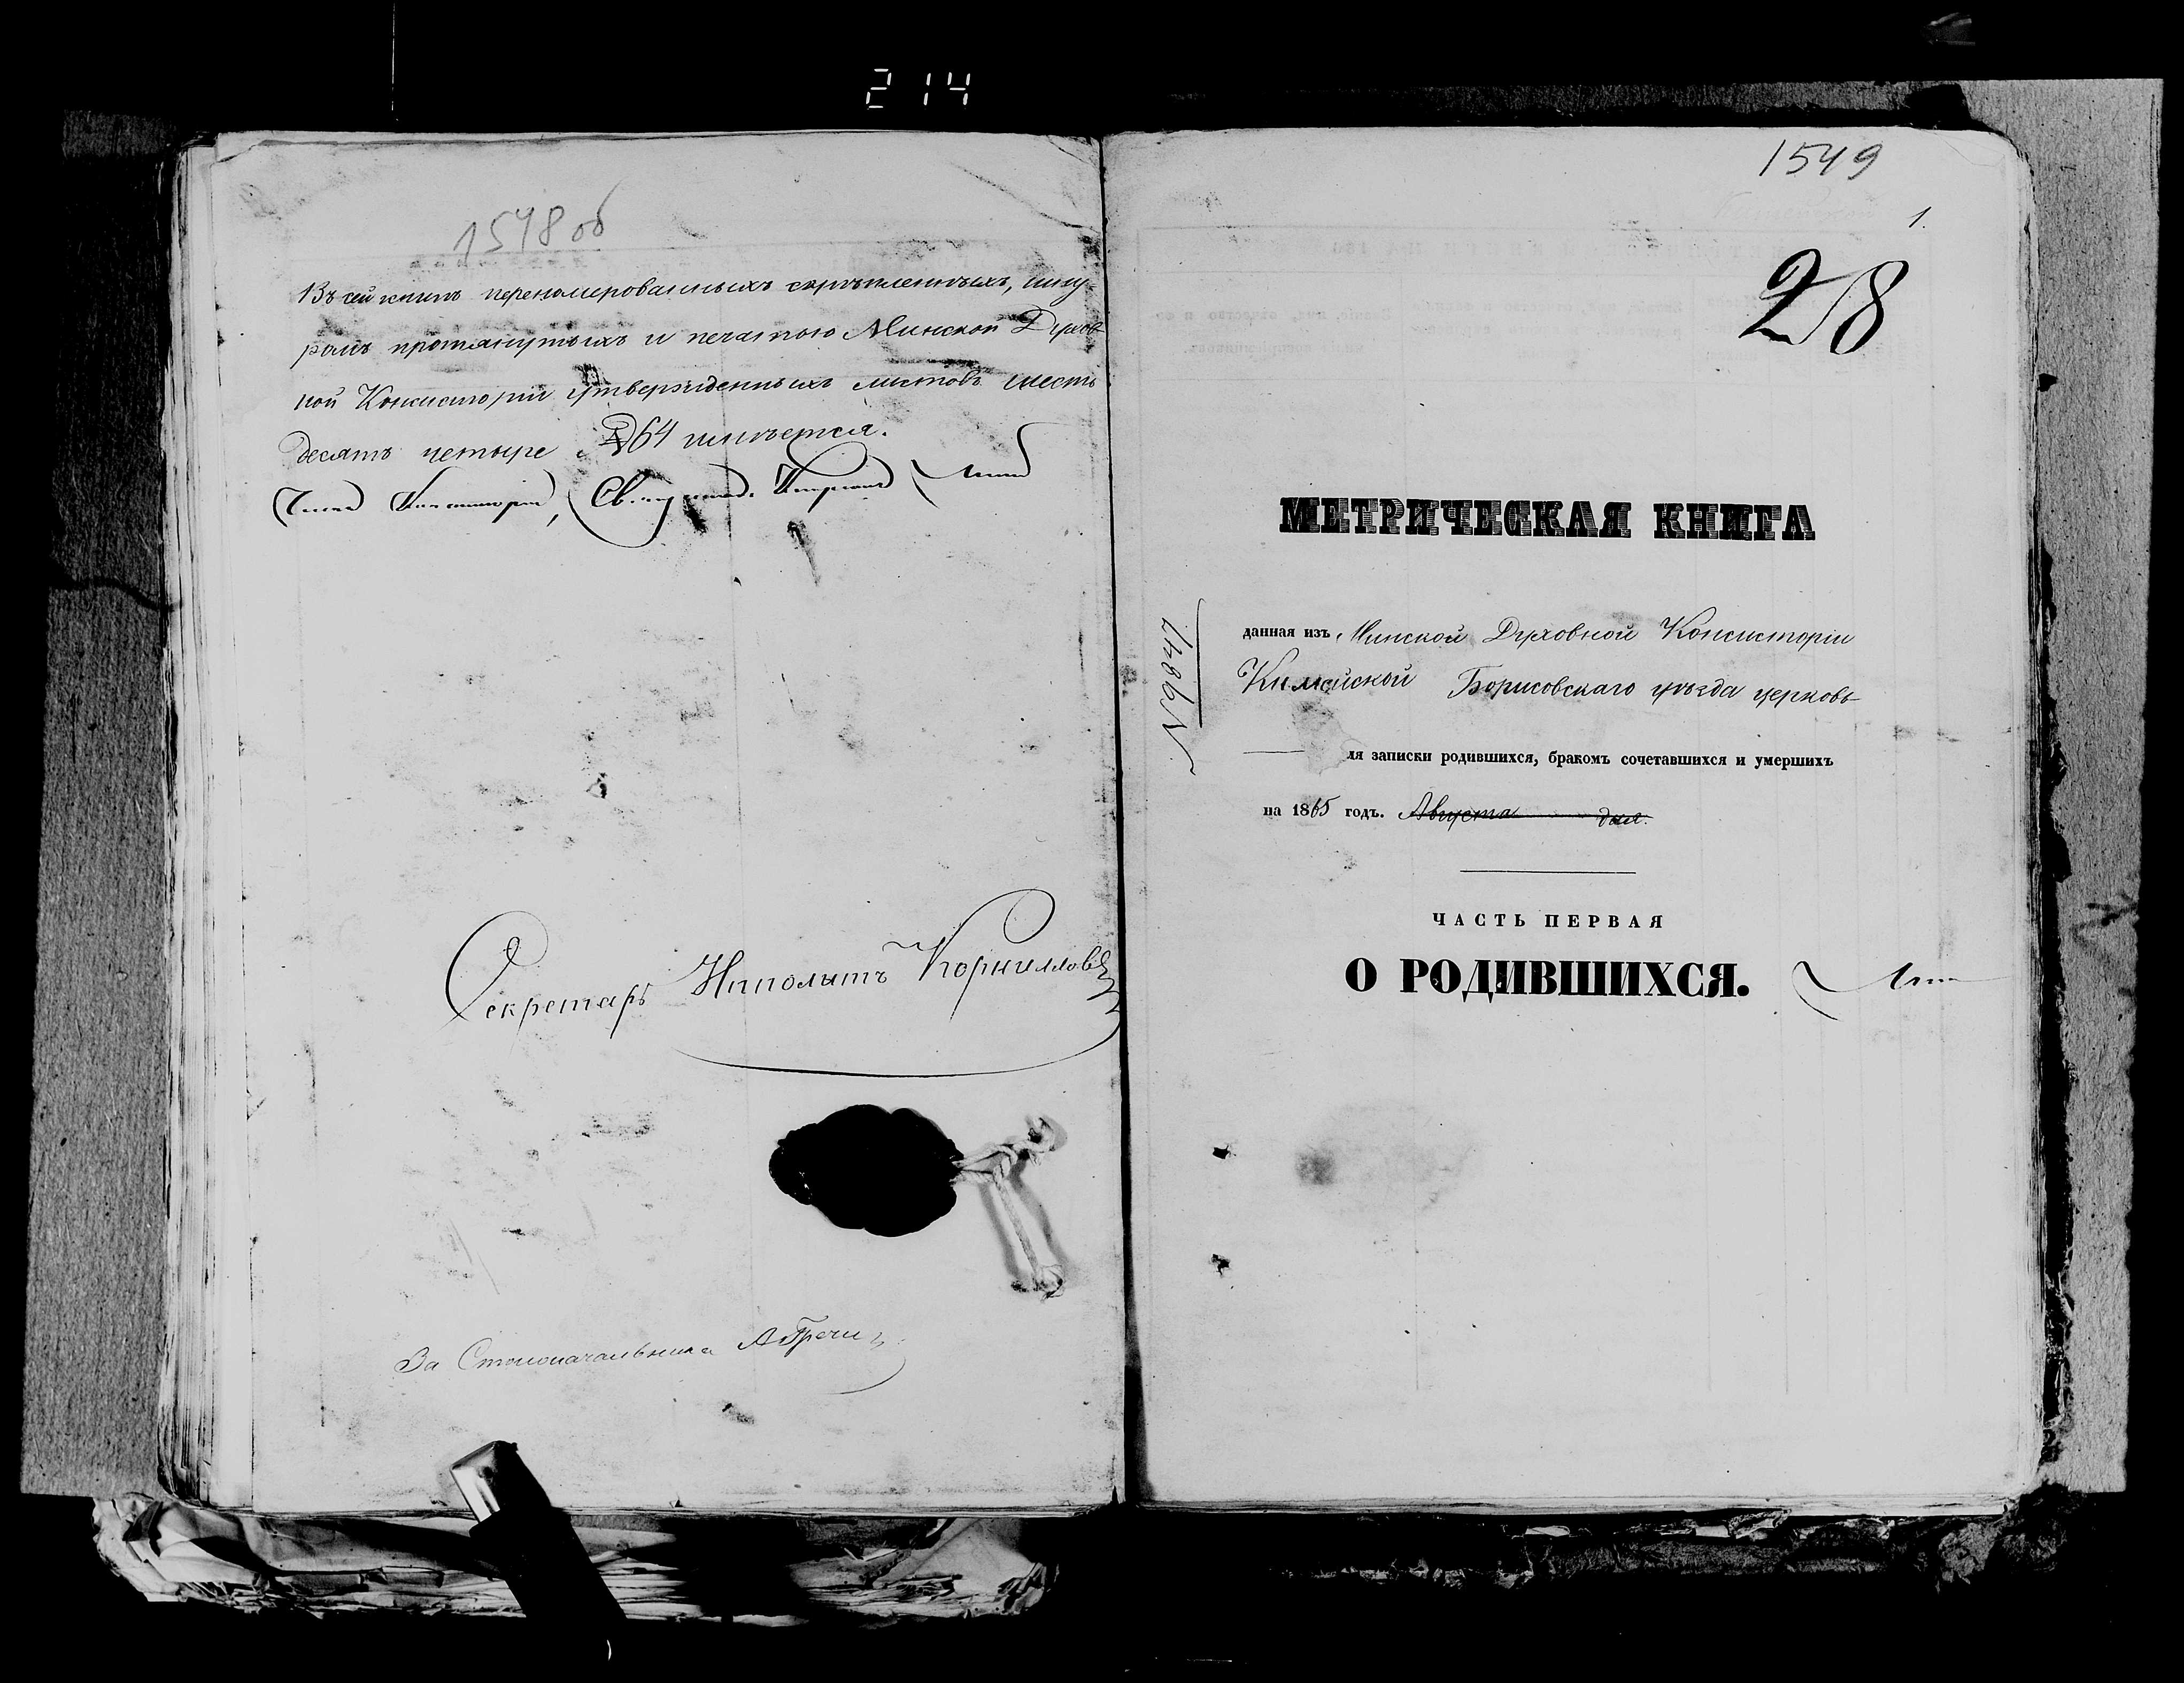 214
1548 об
Въ сей книгѣ перенумерованныхъ скрѣпленныхъ, шну-
ромъ протянутыхъ и печатью Минской Духов
ной Консисторіи утвержденныхъ листовъ шесть
десятъ четыре 64 имѣется.
Членъ Консисторіи,
Секретарь Ипполитъ Корнилов
За Столоначальника
1549
1.
28
МЕТРИЧЕСКАЯ КНИГА
№9847
данная изъ Минской Духовной Консисторіи
Кимейской Борисовскаго уѣзда церковь
ля записки родившихся, бракомъ сочетавшихся и умершихъ
на 1865 годъ. Августа дня.
ЧАСТЬ ПЕРВАЯ
О РОДИВШИХСЯ.